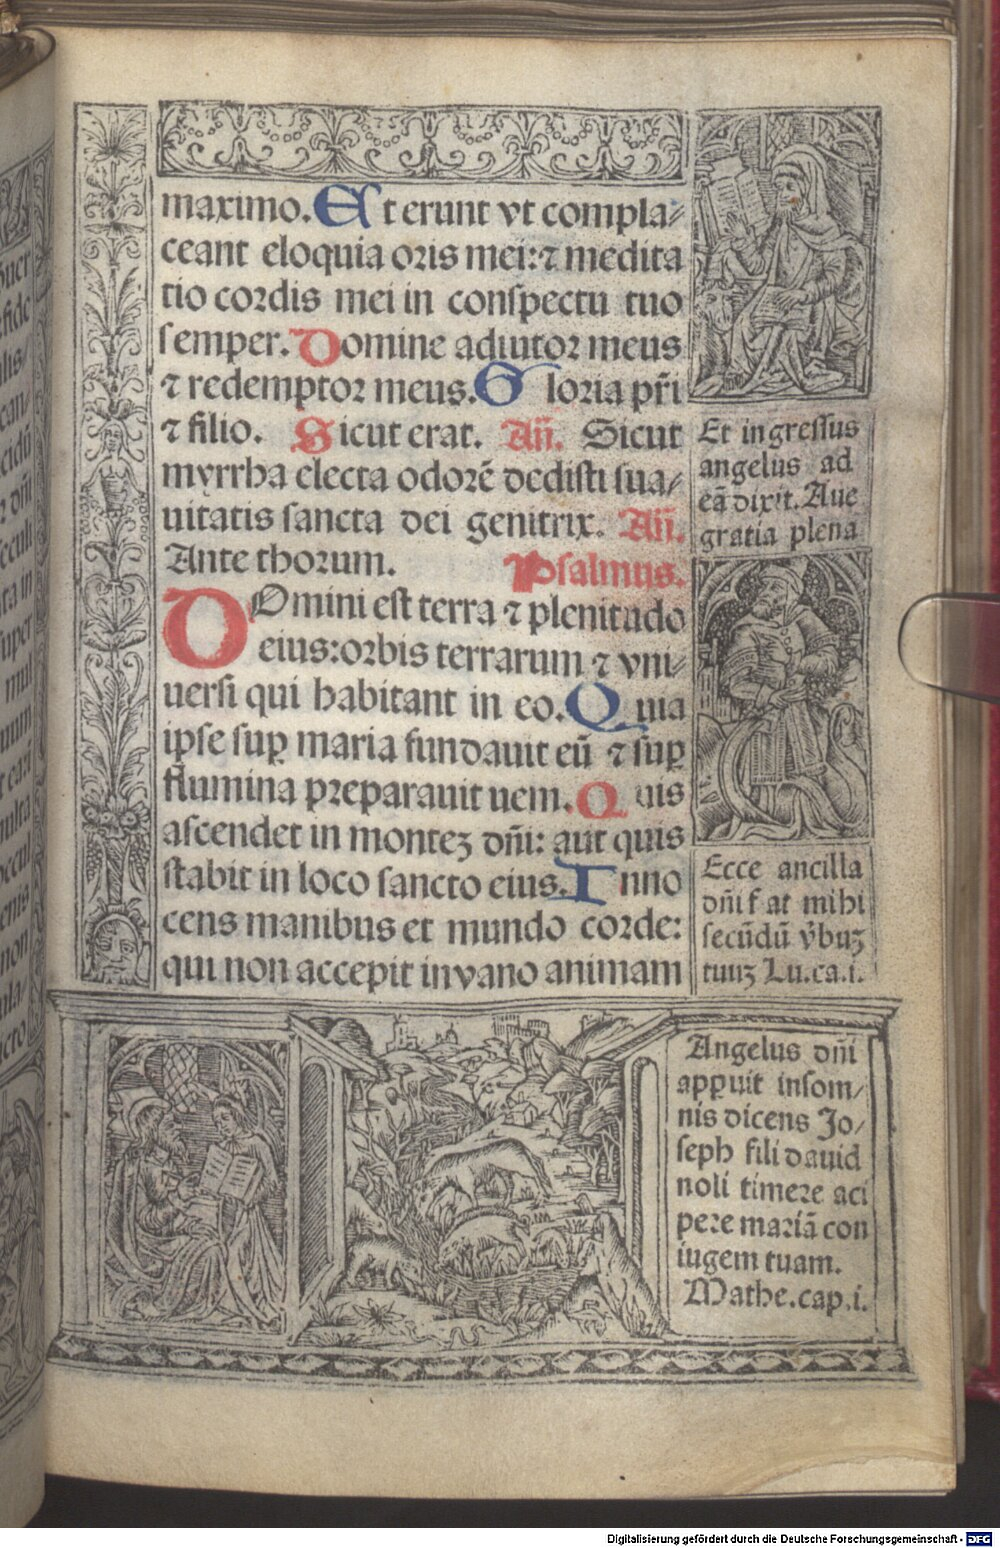 maximo. Et erunt vt compla⸗
ceant eloquia oris mei: ⁊ medita
tio cordis mei in conſpectu tuo
ſemper. Domine adiutor meus
⁊ redemptor meus. Gloria pr̃i
⁊ filio. Sicut erat. Añ. Sicut
myrrha electa odorẽ dediſti ſua⸗
uitatis ſancta dei genitrix. Añ.
Ante thorum. Pſalmus.
DOmini eſt terra ⁊ plenitudo
eius: orbis terrarum ⁊ vni⸗
uerſi qui habitant in eo. Quia
ipſe ſuꝑ maria fundauit eũ ⁊ ſuꝑ
flumina preparauit uem. Quis
aſcendet in monteꝫ dñi: aut quis
ſtabit in loco ſancto eius. Inno
cens manibus et mundo corde:
qui non accepit in vano animam
Et ingreſſus
angelus ad
eã dixit. Aue
gratia plena
Ecce ancilla
dñi f at mihi
ſecũdũ v̓buꝫ
tuuꝫ Lu.ca.i.
Angelus dñi
apꝑuit inſom⸗
nis dicens Jo⸗
ſeph fili dauid
noli timere aci
pere mariã con
iugem tuam.
Mathe.cap.i.
Digitalisierung gefördert durch die Deutsche Forschungsgemeinschaft - DFG